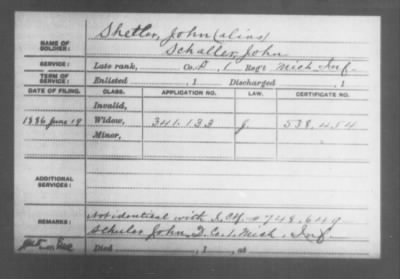 NAME OF SOLDIER: Shetler, John (alias)
Schaller, John
SERVICE: Late rank, Co. A, 1 Reg't Mich. Inf.
TERM OF SERVICE: Enlisted , 1 Discharged , 1
DATE OF FILING. CLASS. APPLICATION NO. LAW. CERTIFICATE NO.
Invalid,
1886 June 19 Widow, 341.133 J. 538.454
Minor,
ADDITIONAL SERVICES:
REMARKS: Not identical with I. Ctf. #748.649
John, D. Co. 1. Mich. Inf.
Died , 1 , at